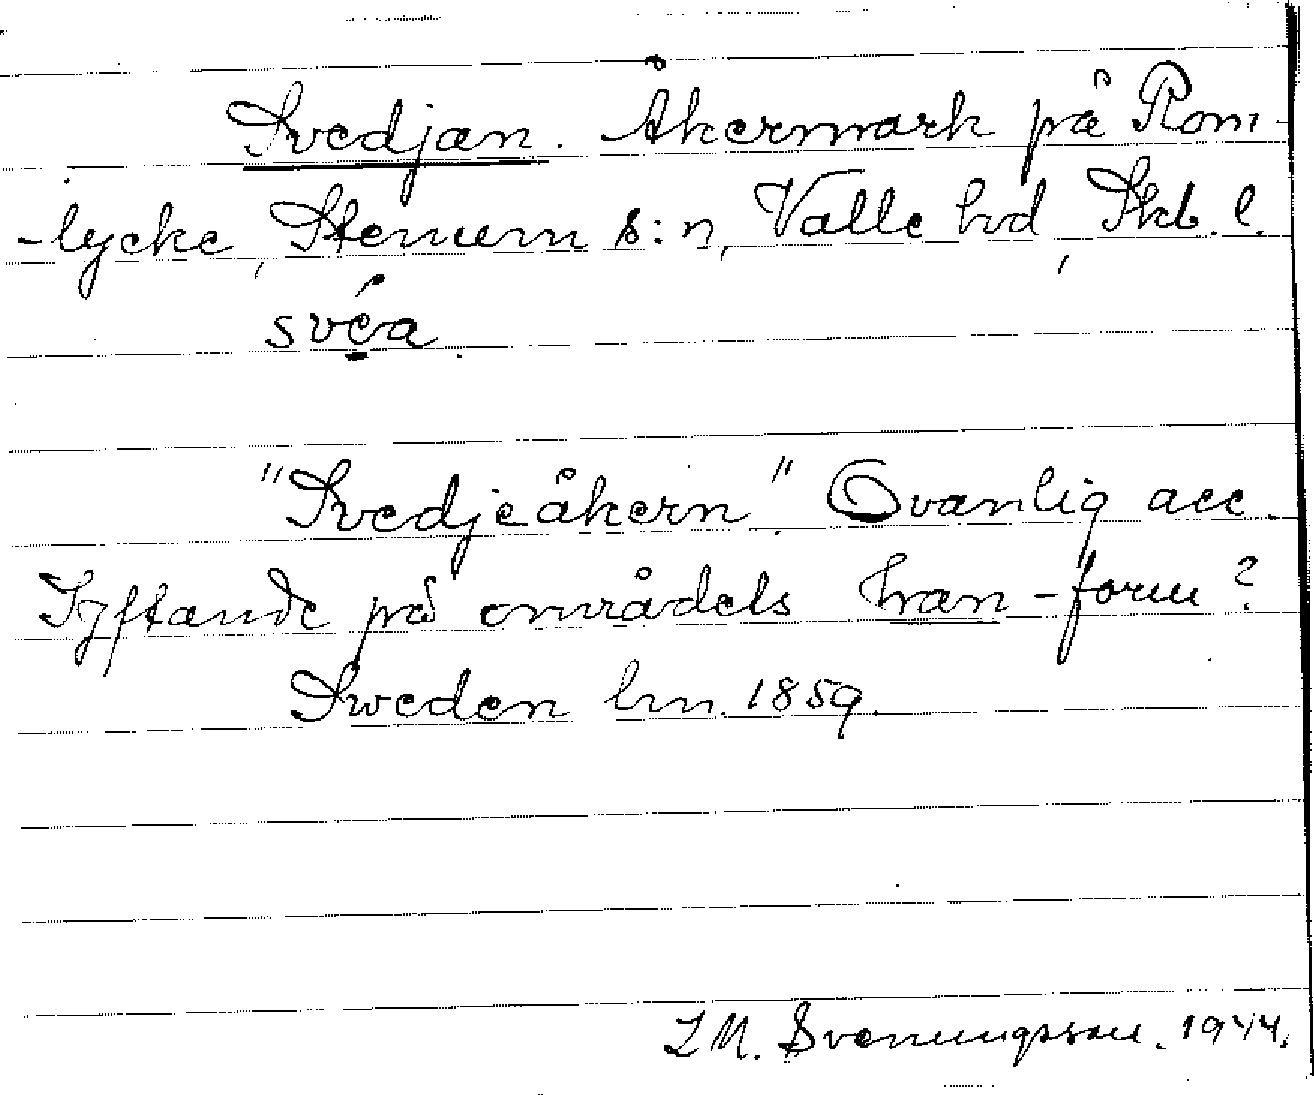 Svedjan. Åkermark på Rom-
-lycke, Stenum s:n, Valle hd, Skb. l.
svéa.
"Svedjeåkern". Ovanlig acc.
Syftande på områdets hran-form?
Sweden hm. 1859.
L M. Svenungsson. 1944.